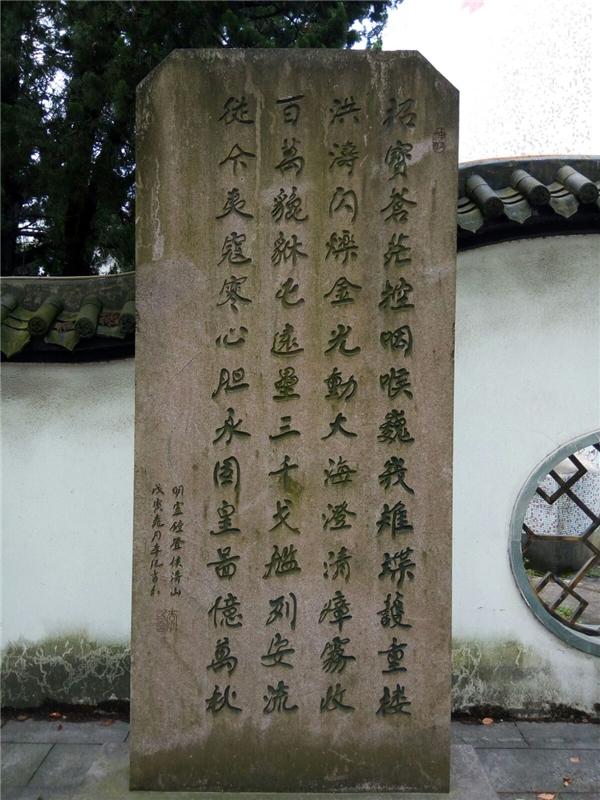 招寶蒼茫控咽喉巍峩雄堞護重楼
洪濤闪爍金光動大海澄清瘴霧收
百萬貔貅屯遠壘三千戈艦列安流
從今夷寇寒心胆永固皇啚億萬秋
明盧鏜登候濤山
戊寅月